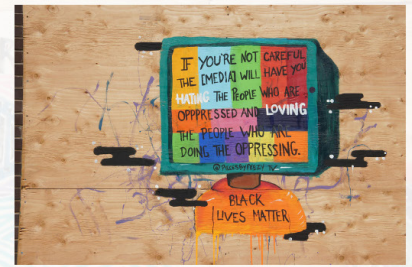 IF YOU'RE NOT CAREFUL
THE [MEDIA] WILL HAVE YOU
HATING THE PEOPLE WHO ARE
OPPPRESSED AND LOVING
THE PEOPLE WHO ARE
DOING THE OPPRESSING.
BLACK
LIVES MATTER